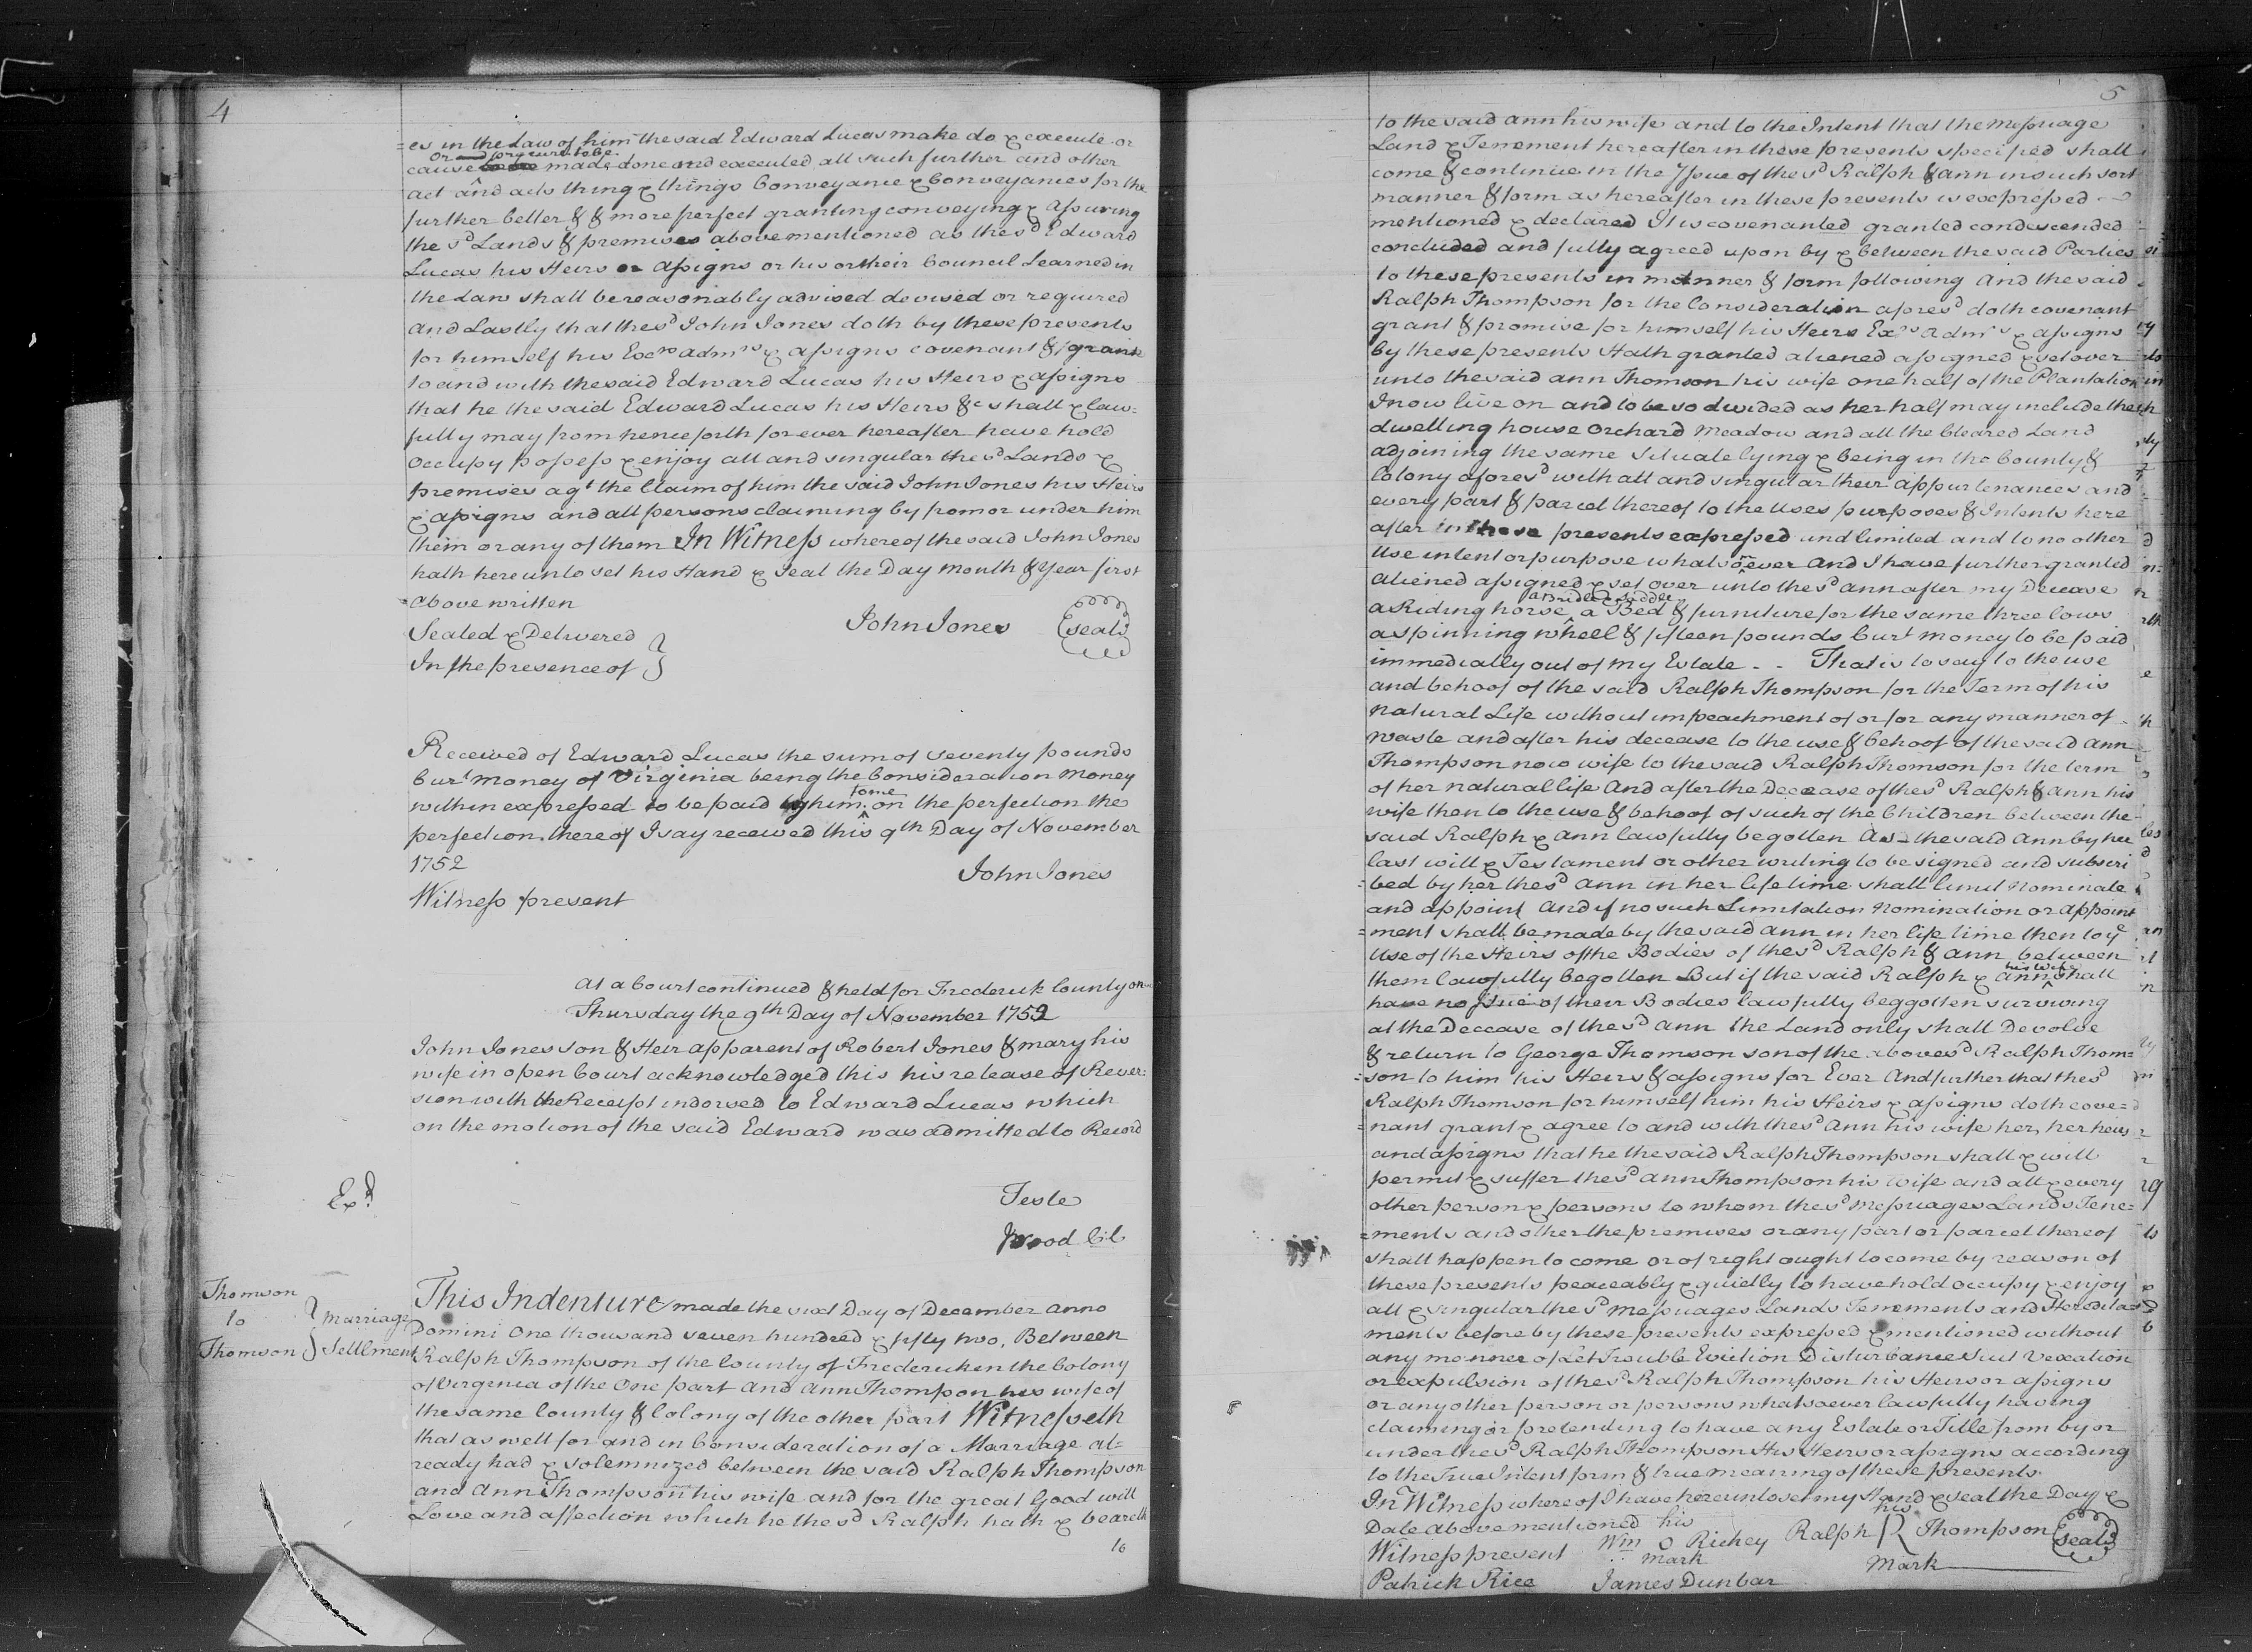 4
=es in the Law of him the said Edward Lucas make do & execute or
or and procure to be
cause to be made done and executed all such further and other
act and acts thing & things Conveyance & Conveyances for the
further better & & more perfect granting conveying & assuring
the sd Lands & premises above mentioned as the sd Edward
Lucas his Heirs or assigns or his or their Council Learned in
the Law shall be reasonably advised devised or required
and Lastly that the sd John Jones doth by these presents
for himself his Excrs admrs & assigns covenant & grant
to and with the said Edward Lucas his Heirs & assigns
that he the said Edward Lucas his Heirs &c shall & law=
fully may from henceforth for ever hereafter have hold
Occupy possess & enjoy all and singular the sd Lands &
premises agt the Claim of him the said John Jones his Heirs
& assigns and all persons claiming by from or under him
them or any of them In Witness whereof the said John Jones
hath hereunto set his Hand & Seal the Day month & Year first
above written
Sealed & Delivered John Jones seal
In the presence of
Received of Edward Lucas the sum of seventy pounds
Curt money of Virginia being the Consideration money
within expressed to be paid by him to me on the perfection the
perfection thereof I say received this 9th Day of November
1752 John Jones
Witness present
At a Court continued & held for Frederick County on
Thursday the 9th Day of November 1752
John Jones son & Heir apparent of Robert Jones & mary his
wife in open Court acknowledged this his release of Rever=
sion with the Receipt indorsed to Edward Lucas which
on the motion of the said Edward was admitted to Record
Exd
Teste
JWood CiC
Thomson
to marriage
Thomson Settlment
This Indenture made the sixt Day of December anno
Domini One thousand seven hundred & fifty two, Between
Ralph Thompson of the County of Frederick in the Colony
of Virginia of the One part and Ann Thompson his wife of
the same County & Colony of the other part Witnesseth
that as well for and in Consideration of a Marriage al=
ready had & solemnized between the said Ralph Thompson
and Ann Thompson his wife and for the great Good will
Love and affection which he the sd Ralph hath & beareth
to
5
to the said ann his wife and to the Intent that the messuage
Land & Tenement hereafter in these presents specified shall
come & continue in the Issue of the sd Ralph & ann in such sort
manner & form as hereafter in these presents is expressed
mentioned & declared It is covenanted granted condescended
concluded and fully agreed upon by & between the said Parties
to these presents in manner & form following And the said
Ralph Thompson for the Consideration aforesd doth covenant
grant & promise for himself his Heirs Exrs admrs & assigns
by these presents Hath granted aliened assigned & set over
unto the said ann Thomson his wife one half of the Plantation
I now live on and to be so divided as her half may include the
dwelling house Orchard meadow and all the Cleared Land
adjoining the same Situate lying & being in the County &
Colony aforesd with all and singular their appurtenances and
every part & parcel thereof to the Uses purposes & Intents here
after in these presents expressed and limited and to no other
Use intent or purpose whatsoever and I have further granted
aliened assigned & set over unto the sd ann after my Decease
a Bridle & saddle
a Riding horse a Bed & furniture for the same three Cows
a spinning wheel & fifteen pounds Curt money to be paid
immedially out of my Estate - - That is to say to the use
and behoof of the said Ralph Thompson for the Term of his
natural Life without impeachment of or for any manner of
waste and after his decease to the use & behoof of the said Ann
Thompson now wife to the said Ralph Thomson for the term
of her natural life And after the Decease of the sd Ralph & ann his
wife then to the use & behoof of such of the Children between the
said Ralph & ann lawfully begotten As the said Ann by her
last will & Testament or other writing to be signed and subscri
=bed by her the sd ann in her life time shall limit Nominate
and appoint And if no such Limitation Nomination or appoint
=ment shall be made by the said ann in her life time then to ye
Use of the Heirs of the Bodies of the sd Ralph & ann between
them lawfully begotten But if the said Ralph & ann his wife shall
have no Issue of their Bodies lawfully beggotten surviving
at the Decease of the sd ann the Land only shall Devolve
& return to George Thomson son of the abovesd Ralph Thom=
=son to him his Heirs & assigns for Ever And further that the sd
Ralph Thomson for himself him his Heirs & assigns doth cove=
=nant grant & agree to and with the sd Ann his wife her, her heirs
and assigns that he the said Ralph Thompson shall & will
permit & suffer the sd ann Thompson his wife and all & every
other person & persons to whom the sd messuages Lands Tene=
=ments and other the premises or any part or parcel thereof
shall happen to come or of right ought to come by reason of
these presents peaceably & quietly to have hold occupy & enjoy
all & singular the sd messuages Lands Tenements and Heredita=
ments before by these presents expressed & mentioned without
any manner of Let Trouble Eviction Disturbance Suit Vexation
or expulsion of the sd Ralph Thompson his Heirs or assigns
or any other person or persons whatsoever lawfully having
claiming or pretending to have any Estate or Title from by or
under the sd Ralph Thompson His Heirs or assigns according
to the True Intent form & true meaning of these presents.
In Witness whereof I have hereunto set my Hand & seal the Day &
Date above mentioned his his
Witness present Wm O Richey Ralph R Thompson seal
mark mark
Patrick Rice James Dunbar